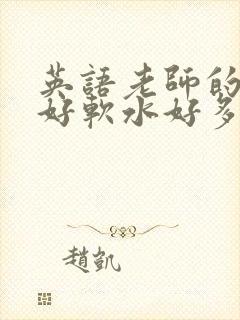 英語老師的
好軟水好多
趙凱